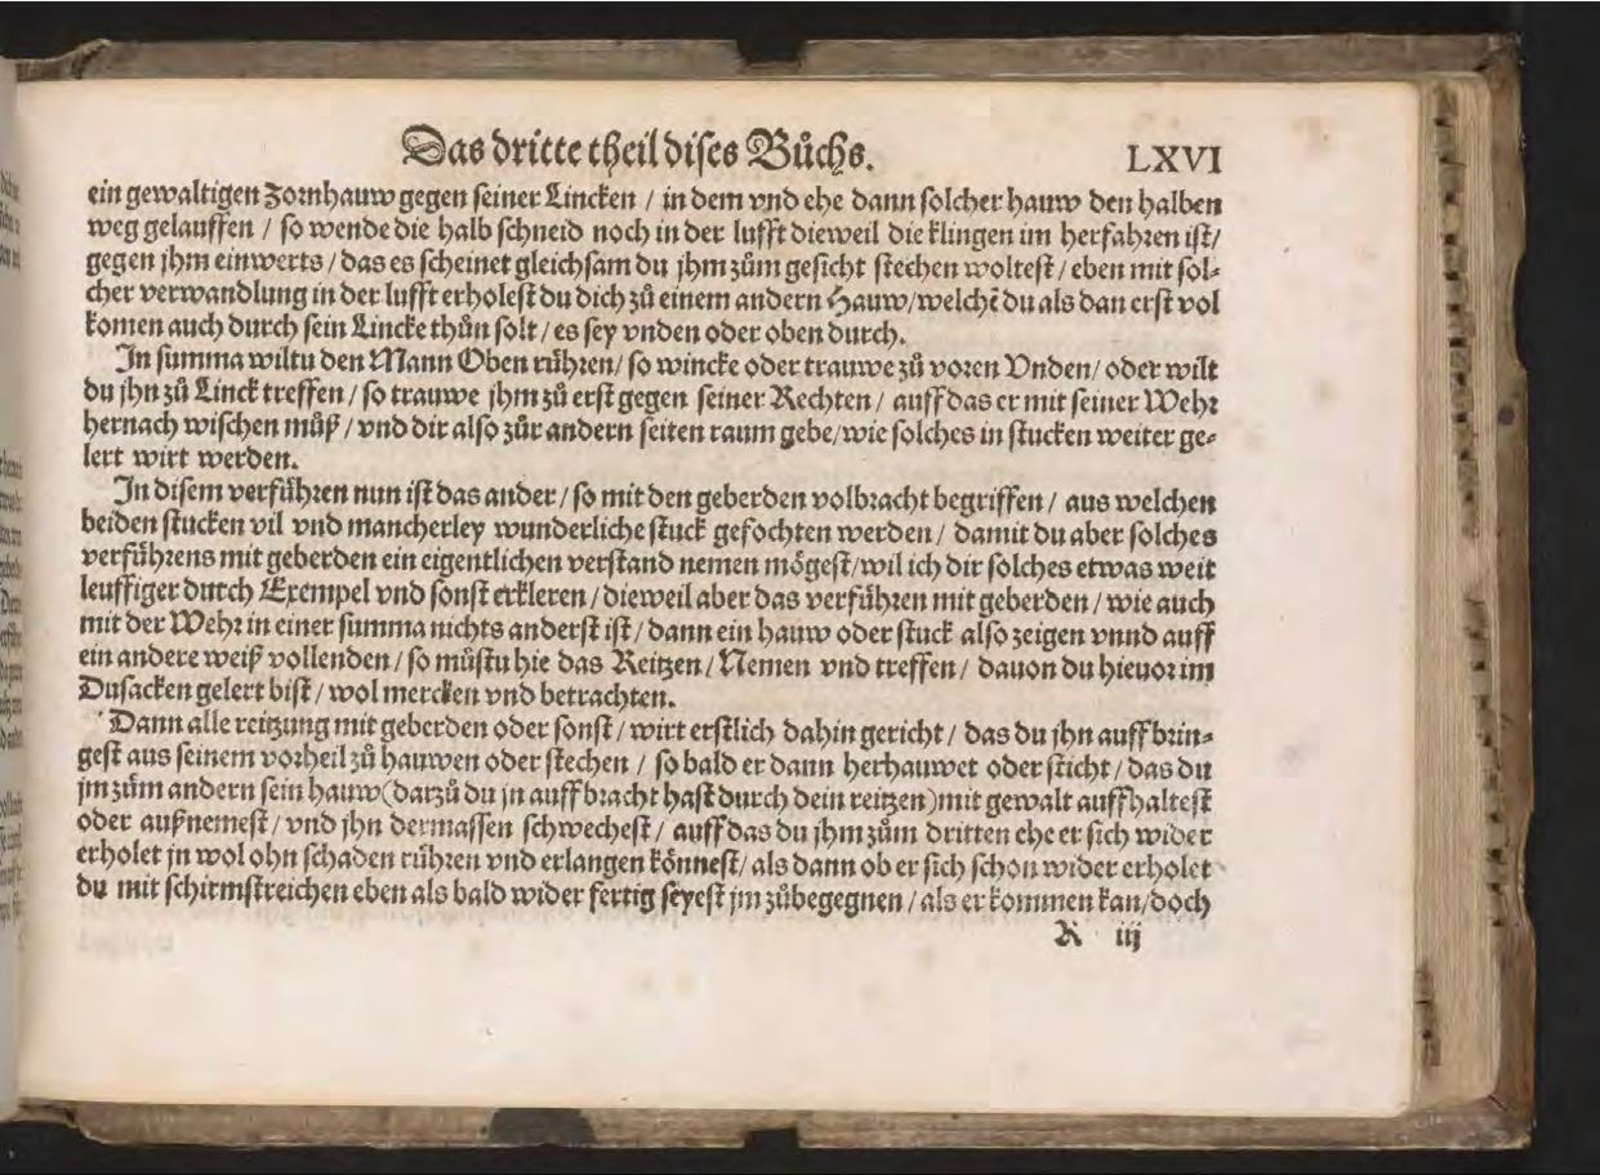 Das dritte theil dises Bůchs. LXVI
ein gewaltigen Zornhauw gegen seiner Lincken / in dem vnd ehe dann solcher hauw den halben
weg gelauffen / so wende die halb schneid noch in der lufft dieweil die klingen im herfahren ist/
gegen jhm einwerts / das es scheinet gleichsam du jhm zům gesicht stechen woltest / eben mit sol-
cher verwandlung in der lufft erholest du dich zů einem andern Hauw/welchẽ du als dan erst vol
komen auch durch sein Lincke thůn solt / es sey vnden oder oben durch.
In summa wiltu den Mann Oben rühren/ so wincke oder trauwe zů voren Vnden/ oder wilt
du jhn zů Linck treffen / so trauwe jhm zů erst gegen seiner Rechten / auff das er mit seiner Wehr
hernach wischen můß / vnd dir also zůr andern seiten raum gebe/wie solches in stucken weiter ge-
lert wirt werden.
In disem verführen nun ist das ander / so mit den geberden volbracht begriffen / aus welchen
beiden stucken vil vnd mancherley wunderliche stuck gefochten werden / damit du aber solches
verführens mit geberden ein eigentlichen verstand nemen mögest/wil ich dir solches etwas weit
leuffiger durch Exempel vnd sonst erkleren / dieweil aber das verführen mit geberden / wie auch
mit der Wehr in einer summa nichts anderst ist / dann ein hauw oder stuck also zeigen vnnd auff
ein andere weiß vollenden / so můstu hie das Reitzen / Nemen vnd treffen / dauon du hieuor im
Dusacken gelert bist / wol mercken vnd betrachten.
Dann alle reitzung mit geberden oder sonst / wirt erstlich dahin gericht / das du jhn auff brin-
gest aus seinem vortheil zů hauwen oder stechen / so bald er dann herhauwet oder sticht / das du
jm zům andern sein hauw (darzů du jn auff bracht hast durch dein reitzen) mit gewalt auffhaltest
oder außnemest / vnd jhn dermassen schwechest / auff das du jhm zům dritten ehe er sich wider
erholet jn wol ohn schaden rühren vnd erlangen könnest/ als dann ob er sich schon wider erholet
du mit schirmstreichen eben als bald wider fertig seyest jm zůbegegnen / als er kommen kan/doch
R iij